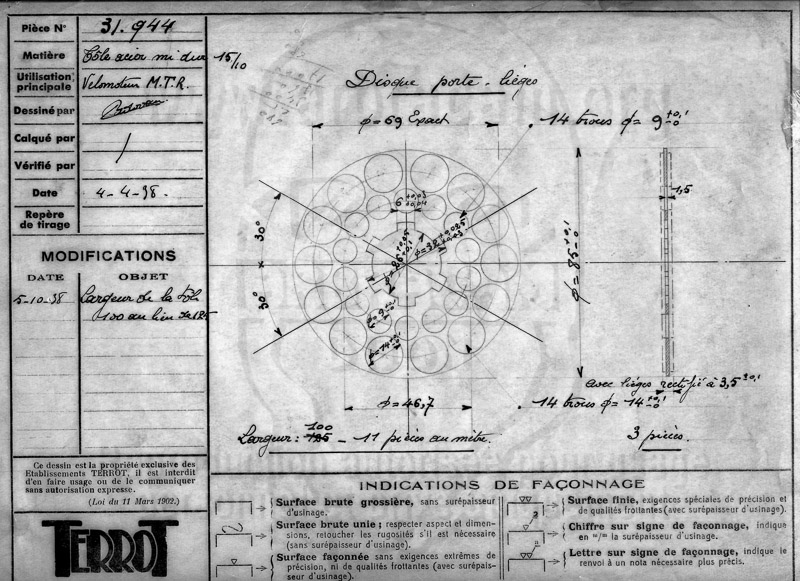 Pièce N° 31.944
Matière Tôle acier mi dur 15/10
Utilisation principale Velomoteur M.T.R.
Dessiné par
Calqué par
Vérifié par
Date 4-4-38.
Repère de tirage
MODIFICATIONS
DATE OBJET
5-10-38 Largeur de la tôle
100 au lieu de 125
Ce dessin est la propriété exclusive des
Etablissements TERROT, il est interdit
d'en faire usage ou de le communiquer
sans autorisation expresse.
(Loi du 11 Mars 1902.)
TERROT
Disque porte-lièges
φ=69 Exact
14 trous φ=9 +0,1 -0
6 +0,03
30°
30°
φ=9
φ=14 +0,1
A
1,5
φ=85 +0,1 -0
avec lièges rectifié à 3,5 ±0,1
φ=46,7
14 trous φ=14 +0,1 -0
Largeur: 100 - 11 pièces au mètre.
3 pièces.
INDICATIONS DE FAÇONNAGE
Surface brute grossière, sans surépaisseur
d'usinage.
Surface brute unie; respecter aspect et dimen-
sions, retoucher les rugosités s'il est nécessaire
(sans surépaisseur d'usinage).
Surface façonnée sans exigences extrêmes de
précision, ni de qualités frottantes (avec surépais-
seur d'usinage).
Surface finie, exigences spéciales de précision et
de qualités frottantes (avec surépaisseur d'usinage).
Chiffre sur signe de façonnage, indique
en "/" la surépaisseur d'usinage.
Lettre sur signe de façonnage, indique le
renvoi à un nota nécessaire plus précis.